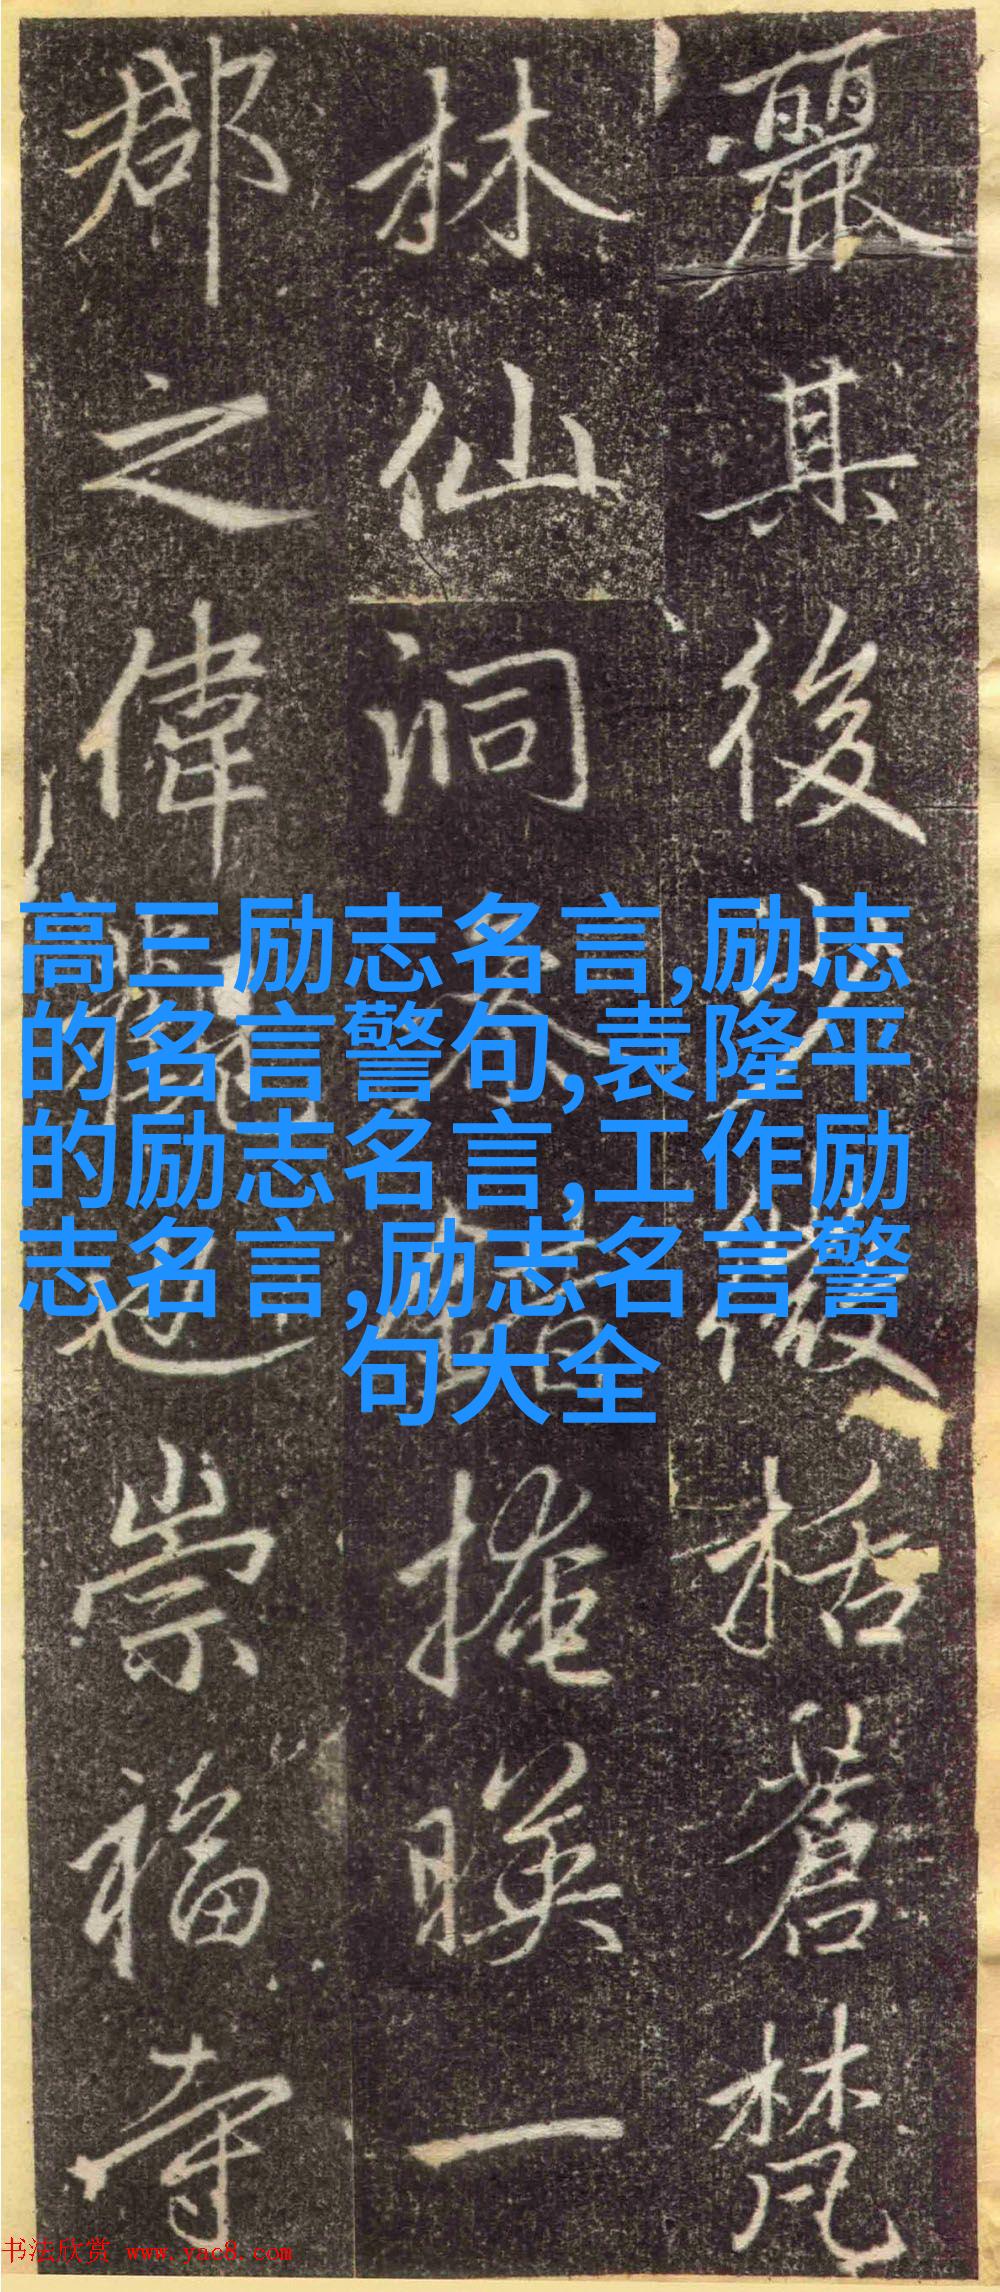 麗其後少微括蒼梵
林仙洞掩暎一
郡之偉觀也崇福寺
高三励志名言,励志
的名言警句,袁隆平
的励志名言,工作励
志名言,励志名言警
句大全
书法欣赏 www.yac8.com